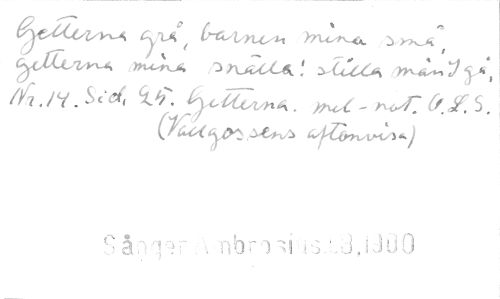 Getterna grå, barnen mina små,
getterna mina snälla! stilla mån I gå,
Nr. 14. Sid. 25. Getterna. mel-not. O.L.S.
(Vallgossens aftonvisa)
Sånger Ambrosius